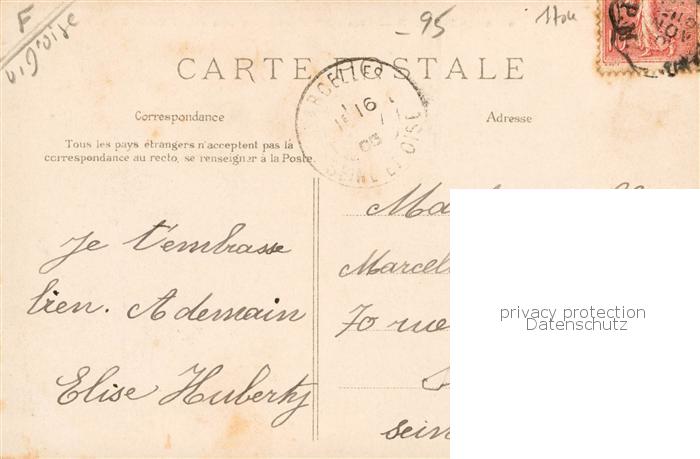 F
- 95
CARTE POSTALE
Correspondance
Adresse
Tous les pays étrangers n'acceptent pas la
correspondance au recto, se renseigner à la Poste.
16
SEINE ET OISE
Je t'embrasse
bien. A demain
Elise Huberty
Marcel
70 rue
sein
privacy protection
Datenschutz